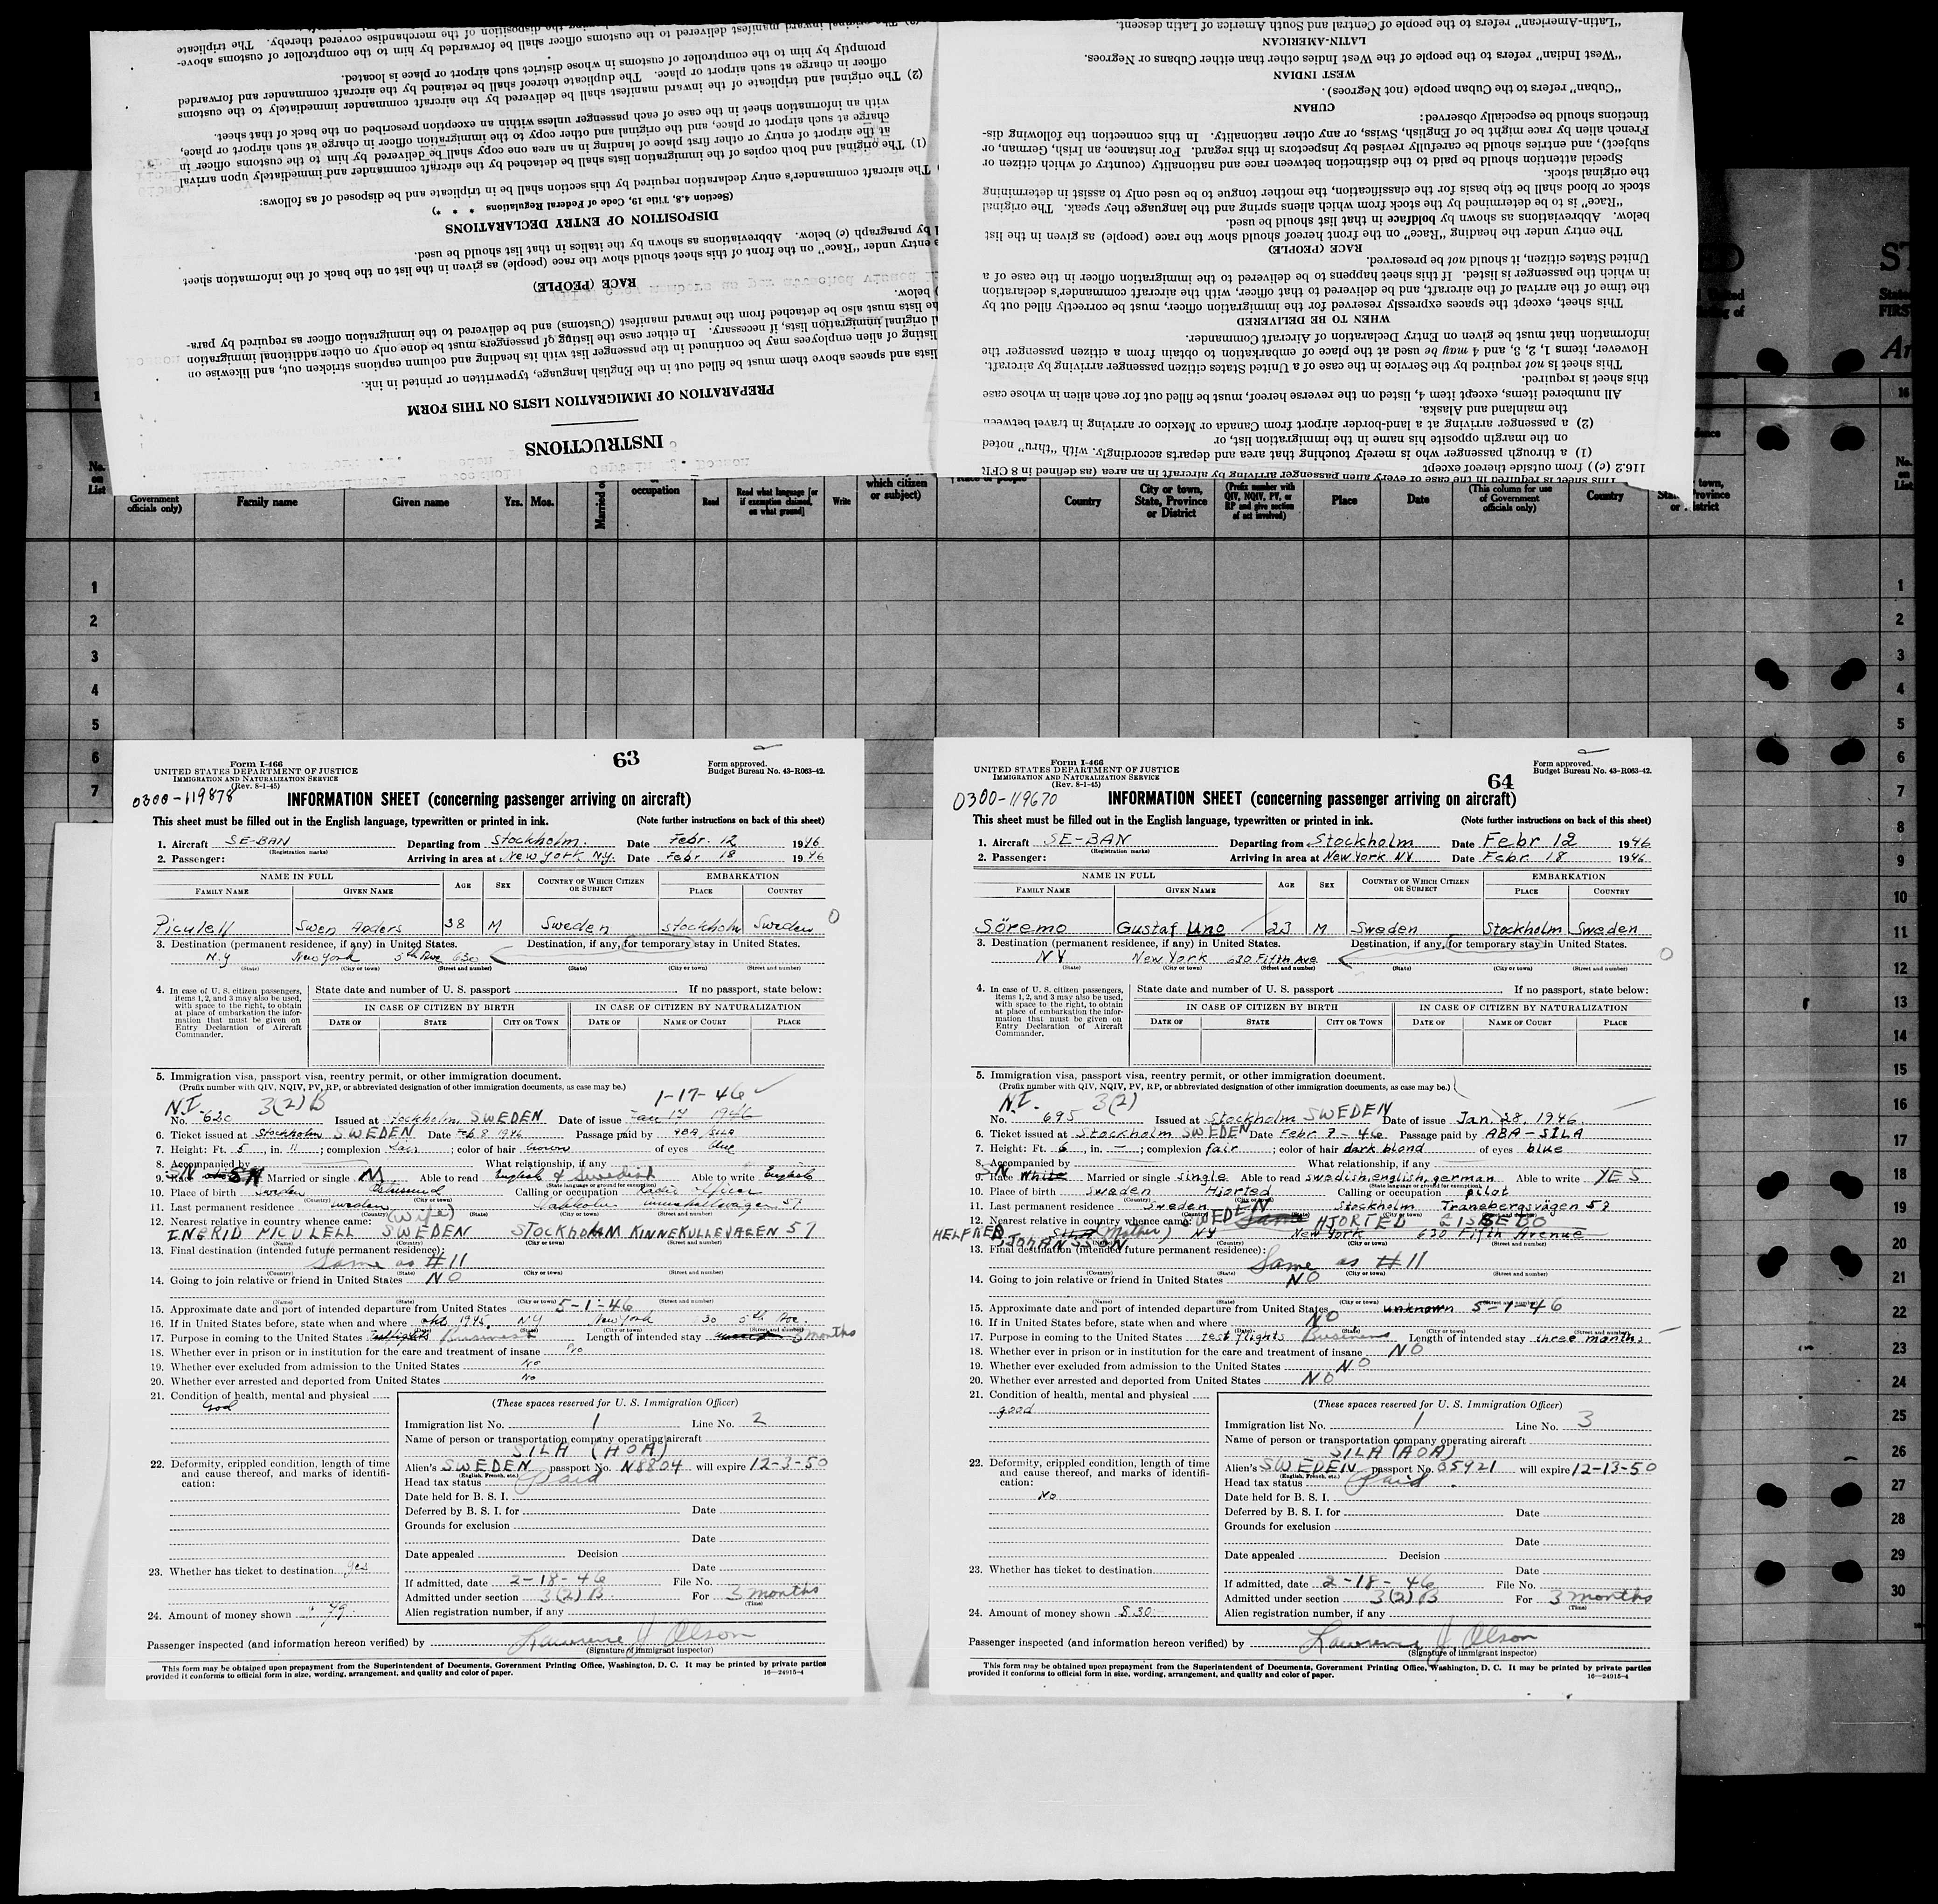 INSTRUCTIONS
PREPARATION OF IMMIGRATION LISTS ON THIS FORM
lists and spaces above them must be filled out in the English language, typewritten or printed in ink.
listing of alien employees may be continued in the passenger list with its heading and column captions stricken out, and likewise on
original immigration lists, if necessary. In either case the listing of passengers must be done only on other additional immigration
lists must also be detached from the inward manifest (Customs) and be delivered to the immigration officer as required by para-
below.
RACE (PEOPLE)
entry under "Race" on the front of this sheet should show the race (people) as given in the list on the back of the information sheet
by paragraph (c) below. Abbreviations as shown by the italics in that list should be used.
DISPOSITION OF ENTRY DECLARATIONS
(Section 4.8, Title 19, Code of Federal Regulations * * *)
The aircraft commander's entry declaration required by this section shall be in triplicate and be disposed of as follows:
(1) The original and both copies of the immigration lists shall be detached by the aircraft commander and immediately upon arrival
at the airport of entry or other first place of landing in an area one copy shall be delivered by him to the customs officer in
charge at such airport or place, and the original and other copy to the immigration officer in charge at such airport or place,
with an information sheet in the case of each passenger unless within an exception prescribed on the back of that sheet.
(2) The original and triplicate of the inward manifest shall be delivered by the aircraft commander immediately to the customs
officer in charge at such airport or place. The duplicate thereof shall be retained by the aircraft commander and forwarded
promptly by him to the comptroller of customs in whose district such airport or place is located.
original inward manifest delivered to the customs officer shall be forwarded by him to the comptroller of customs above-
the disposition of the merchandise covered thereby. The triplicate
This sheet is required in the case of every alien passenger arriving by aircraft in an area (as defined in 8 CFR
116.2 (c)) from outside thereof except
(1) a through passenger who is merely touching that area and departs accordingly, with "thru" noted
on the margin opposite his name in the immigration list, or
(2) a passenger arriving at a land-border airport from Canada or Mexico or arriving in travel between
the mainland and Alaska.
All numbered items, except item 4, listed on the reverse hereof, must be filled out for each alien in whose case
this sheet is required.
This sheet is not required by the Service in the case of a United States citizen passenger arriving by aircraft.
However, items 1, 2, 3, and 4 may be used at the place of embarkation to obtain from a citizen passenger the
information that must be given on Entry Declaration of Aircraft Commander.
WHEN TO BE DELIVERED
This sheet, except the spaces expressly reserved for the immigration officer, must be correctly filled out by
the time of the arrival of the aircraft, and be delivered to the immigration officer, with the aircraft commander's declaration
in which the passenger is listed. If this sheet happens to be delivered to the immigration officer in the case of a
United States citizen, it should not be preserved.
RACE (PEOPLE)
The entry under the heading "Race" on the front hereof should show the race (people) as given in the list
below. Abbreviations as shown by boldface in that list should be used.
"Race" is to be determined by the stock from which aliens spring and the language they speak. The original
stock or blood shall be the basis for the classification, the mother tongue to be used only to assist in determining
the original stock.
Special attention should be paid to the distinction between race and nationality (country of which citizen or
subject), and entries should be carefully revised by inspectors in this regard. For instance, an Irish, German, or
French alien by race might be of English, Swiss, or any other nationality. In this connection the following dis-
tinctions should be especially observed:
CUBAN
"Cuban" refers to the Cuban people (not Negroes).
WEST INDIAN
"West Indian" refers to the people of the West Indies other than either Cubans or Negroes.
LATIN-AMERICAN
"Latin-American" refers to the people of Central and South America of Latin descent.
No. on List
Government officials only)
Family name
Given name
Yrs. Mos.
occupation
Read
Read what language [or if exemption claimed, on what ground]
Write
which citizen or subject)
Country
City or town, State, Province or District
(Prefix number with QIV, NQIV, PV, or RP and give section of act involved)
Place
Date
(This column for use of Government officials only)
Country
1
2
3
4
5
6
7
8
9
10
11
12
13
14
15
16
17
18
19
20
21
22
23
24
25
26
27
28
29
30
Form I-466
UNITED STATES DEPARTMENT OF JUSTICE
IMMIGRATION AND NATURALIZATION SERVICE
(Rev. 8-1-45)
63
Form approved.
Budget Bureau No. 43-R063-42.
0300-119878
INFORMATION SHEET (concerning passenger arriving on aircraft)
This sheet must be filled out in the English language, typewritten or printed in ink. (Note further instructions on back of this sheet)
1. Aircraft SE-BAN (Registration marks) Departing from Stockholm. Date Febr. 12 1946
2. Passenger: Arriving in area at New York N.Y. Date Febr 18 1946
NAME IN FULL AGE SEX COUNTRY OF WHICH CITIZEN OR SUBJECT EMBARKATION
FAMILY NAME GIVEN NAME PLACE COUNTRY
Piculell Swen Anders 38 M Sweden Stockholm Sweden
3. Destination (permanent residence, if any) in United States. Destination, if any, for temporary stay in United States.
N.Y New York 5th Ave 630
(State) (City or town) (Street and number) (State) (City or town) (Street and number)
4. In case of U. S. citizen passengers, items 1, 2, and 3 may also be used, with space to the right, to obtain at place of embarkation the information that must be given on Entry Declaration of Aircraft Commander.
State date and number of U. S. passport If no passport, state below:
IN CASE OF CITIZEN BY BIRTH IN CASE OF CITIZEN BY NATURALIZATION
DATE OF STATE CITY OR TOWN DATE OF NAME OF COURT PLACE
5. Immigration visa, passport visa, reentry permit, or other immigration document.
(Prefix number with QIV, NQIV, PV, RP, or abbreviated designation of other immigration documents, as case may be.)
N.I. 3(2)B 1-17-46
No. 620 Issued at Stockholm, SWEDEN Date of issue Jan 17 1946
6. Ticket issued at Stockholm SWEDEN Date Feb 8 1946 Passage paid by ABA/SILA
7. Height: Ft. 5, in. 11; complexion fair; color of hair brown of eyes blue
8. Accompanied by What relationship, if any
9. Race SN Married or single M Able to read English & Swedish Able to write English
10. Place of birth Sweden Calling or occupation Radio
(Country) (City or town) (State language or ground for exemption)
11. Last permanent residence Sweden Stockholm 57
12. Nearest relative in country whence came: (Wife)
INGRID PICULELL SWEDEN STOCKHOLM KINNEKULLEVAGEN 57
13. Final destination (intended future permanent residence):
Same as #11
(Country) (State) (City or town) (Street and number)
14. Going to join relative or friend in United States NO
(Name) (State) (City or town) (Street and number)
15. Approximate date and port of intended departure from United States 5-1-46
16. If in United States before, state when and where okt 1945. NY New York 5th Ave.
17. Purpose in coming to the United States Testflights Business Length of intended stay 3 months
18. Whether ever in prison or in institution for the care and treatment of insane No
19. Whether ever excluded from admission to the United States No
20. Whether ever arrested and deported from United States No
21. Condition of health, mental and physical
God
22. Deformity, crippled condition, length of time and cause thereof, and marks of identification:
23. Whether has ticket to destination. yes
24. Amount of money shown $ 79.
(These spaces reserved for U. S. Immigration Officer)
Immigration list No. 1 Line No. 2
Name of person or transportation company operating aircraft
SILA (HOA)
Alien's SWEDEN passport No. N8804 will expire 12-3-50
(English, French, etc.)
Head tax status Paid
Date held for B. S. I.
Deferred by B. S. I. for Date
Grounds for exclusion
Date
Date appealed Decision
Date
If admitted, date 2-18-46 File No.
Admitted under section 3(2)B For 3 months
Alien registration number, if any
Passenger inspected (and information hereon verified) by Lawrence J Olson
(Signature of immigrant inspector)
This form may be obtained upon prepayment from the Superintendent of Documents, Government Printing Office, Washington, D. C. It may be printed by private parties
provided it conforms to official form in size, wording, arrangement, and quality and color of paper. 16—24915-4
Form I-466
UNITED STATES DEPARTMENT OF JUSTICE
IMMIGRATION AND NATURALIZATION SERVICE
(Rev. 8-1-45)
64
Form approved.
Budget Bureau No. 43-R063-42.
0300-119670
INFORMATION SHEET (concerning passenger arriving on aircraft)
This sheet must be filled out in the English language, typewritten or printed in ink. (Note further instructions on back of this sheet)
1. Aircraft SE-BAN (Registration marks) Departing from Stockholm Date Febr 12 1946
2. Passenger: Arriving in area at New York NY Date Febr 18 1946.
NAME IN FULL AGE SEX COUNTRY OF WHICH CITIZEN OR SUBJECT EMBARKATION
FAMILY NAME GIVEN NAME PLACE COUNTRY
Söremo Gustaf Uno 23 M Sweden Stockholm Sweden
3. Destination (permanent residence, if any) in United States. Destination, if any, for temporary stay in United States.
NY New York 630 Fifth Ave
(State) (City or town) (Street and number) (State) (City or town) (Street and number)
4. In case of U. S. citizen passengers, items 1, 2, and 3 may also be used, with space to the right, to obtain at place of embarkation the information that must be given on Entry Declaration of Aircraft Commander.
State date and number of U. S. passport If no passport, state below:
IN CASE OF CITIZEN BY BIRTH IN CASE OF CITIZEN BY NATURALIZATION
DATE OF STATE CITY OR TOWN DATE OF NAME OF COURT PLACE
5. Immigration visa, passport visa, reentry permit, or other immigration document.
(Prefix number with QIV, NQIV, PV, RP, or abbreviated designation of other immigration documents, as case may be.)
N.I. 3(2)
No. 695 Issued at Stockholm SWEDEN Date of issue Jan. 28, 1946.
6. Ticket issued at Stockholm SWEDEN Date Febr 7-46 Passage paid by ABA-SILA
7. Height: Ft. 6, in. —; complexion fair; color of hair dark blond of eyes blue
8. Accompanied by What relationship, if any
9. Race SN White Married or single single Able to read swedish, english, german Able to write YES
10. Place of birth Sweden Hjorted Calling or occupation pilot
11. Last permanent residence Sweden Stockholm Tranebergsvägen 57
12. Nearest relative in country whence came: SWEDEN Same HJORTED
HELFRED JOHANSSON (Mother) NY New York 630 Fifth Avenue
13. Final destination (intended future permanent residence):
Same as #11
(Country) (State) (City or town) (Street and number)
14. Going to join relative or friend in United States NO
(Name) (State) (City or town) (Street and number)
15. Approximate date and port of intended departure from United States unknown 5-1-46
16. If in United States before, state when and where NO
17. Purpose in coming to the United States test flights Business Length of intended stay three months
18. Whether ever in prison or in institution for the care and treatment of insane NO
19. Whether ever excluded from admission to the United States NO
20. Whether ever arrested and deported from United States NO
21. Condition of health, mental and physical
good
22. Deformity, crippled condition, length of time and cause thereof, and marks of identification:
No
23. Whether has ticket to destination
24. Amount of money shown $ 30.
(These spaces reserved for U. S. Immigration Officer)
Immigration list No. 1 Line No. 3
Name of person or transportation company operating aircraft
SILA (AOA)
Alien's SWEDEN passport No. 05921 will expire 12-13-50
(English, French, etc.)
Head tax status Paid
Date held for B. S. I.
Deferred by B. S. I. for Date
Grounds for exclusion
Date
Date appealed Decision
Date
If admitted, date 2-18-46 File No.
Admitted under section 3(2)B For 3 months
(Time)
Alien registration number, if any
Passenger inspected (and information hereon verified) by Lawrence J Olson
(Signature of immigrant inspector)
This form may be obtained upon prepayment from the Superintendent of Documents, Government Printing Office, Washington, D. C. It may be printed by private parties
provided it conforms to official form in size, wording, arrangement, and quality and color of paper. 16—24915-4